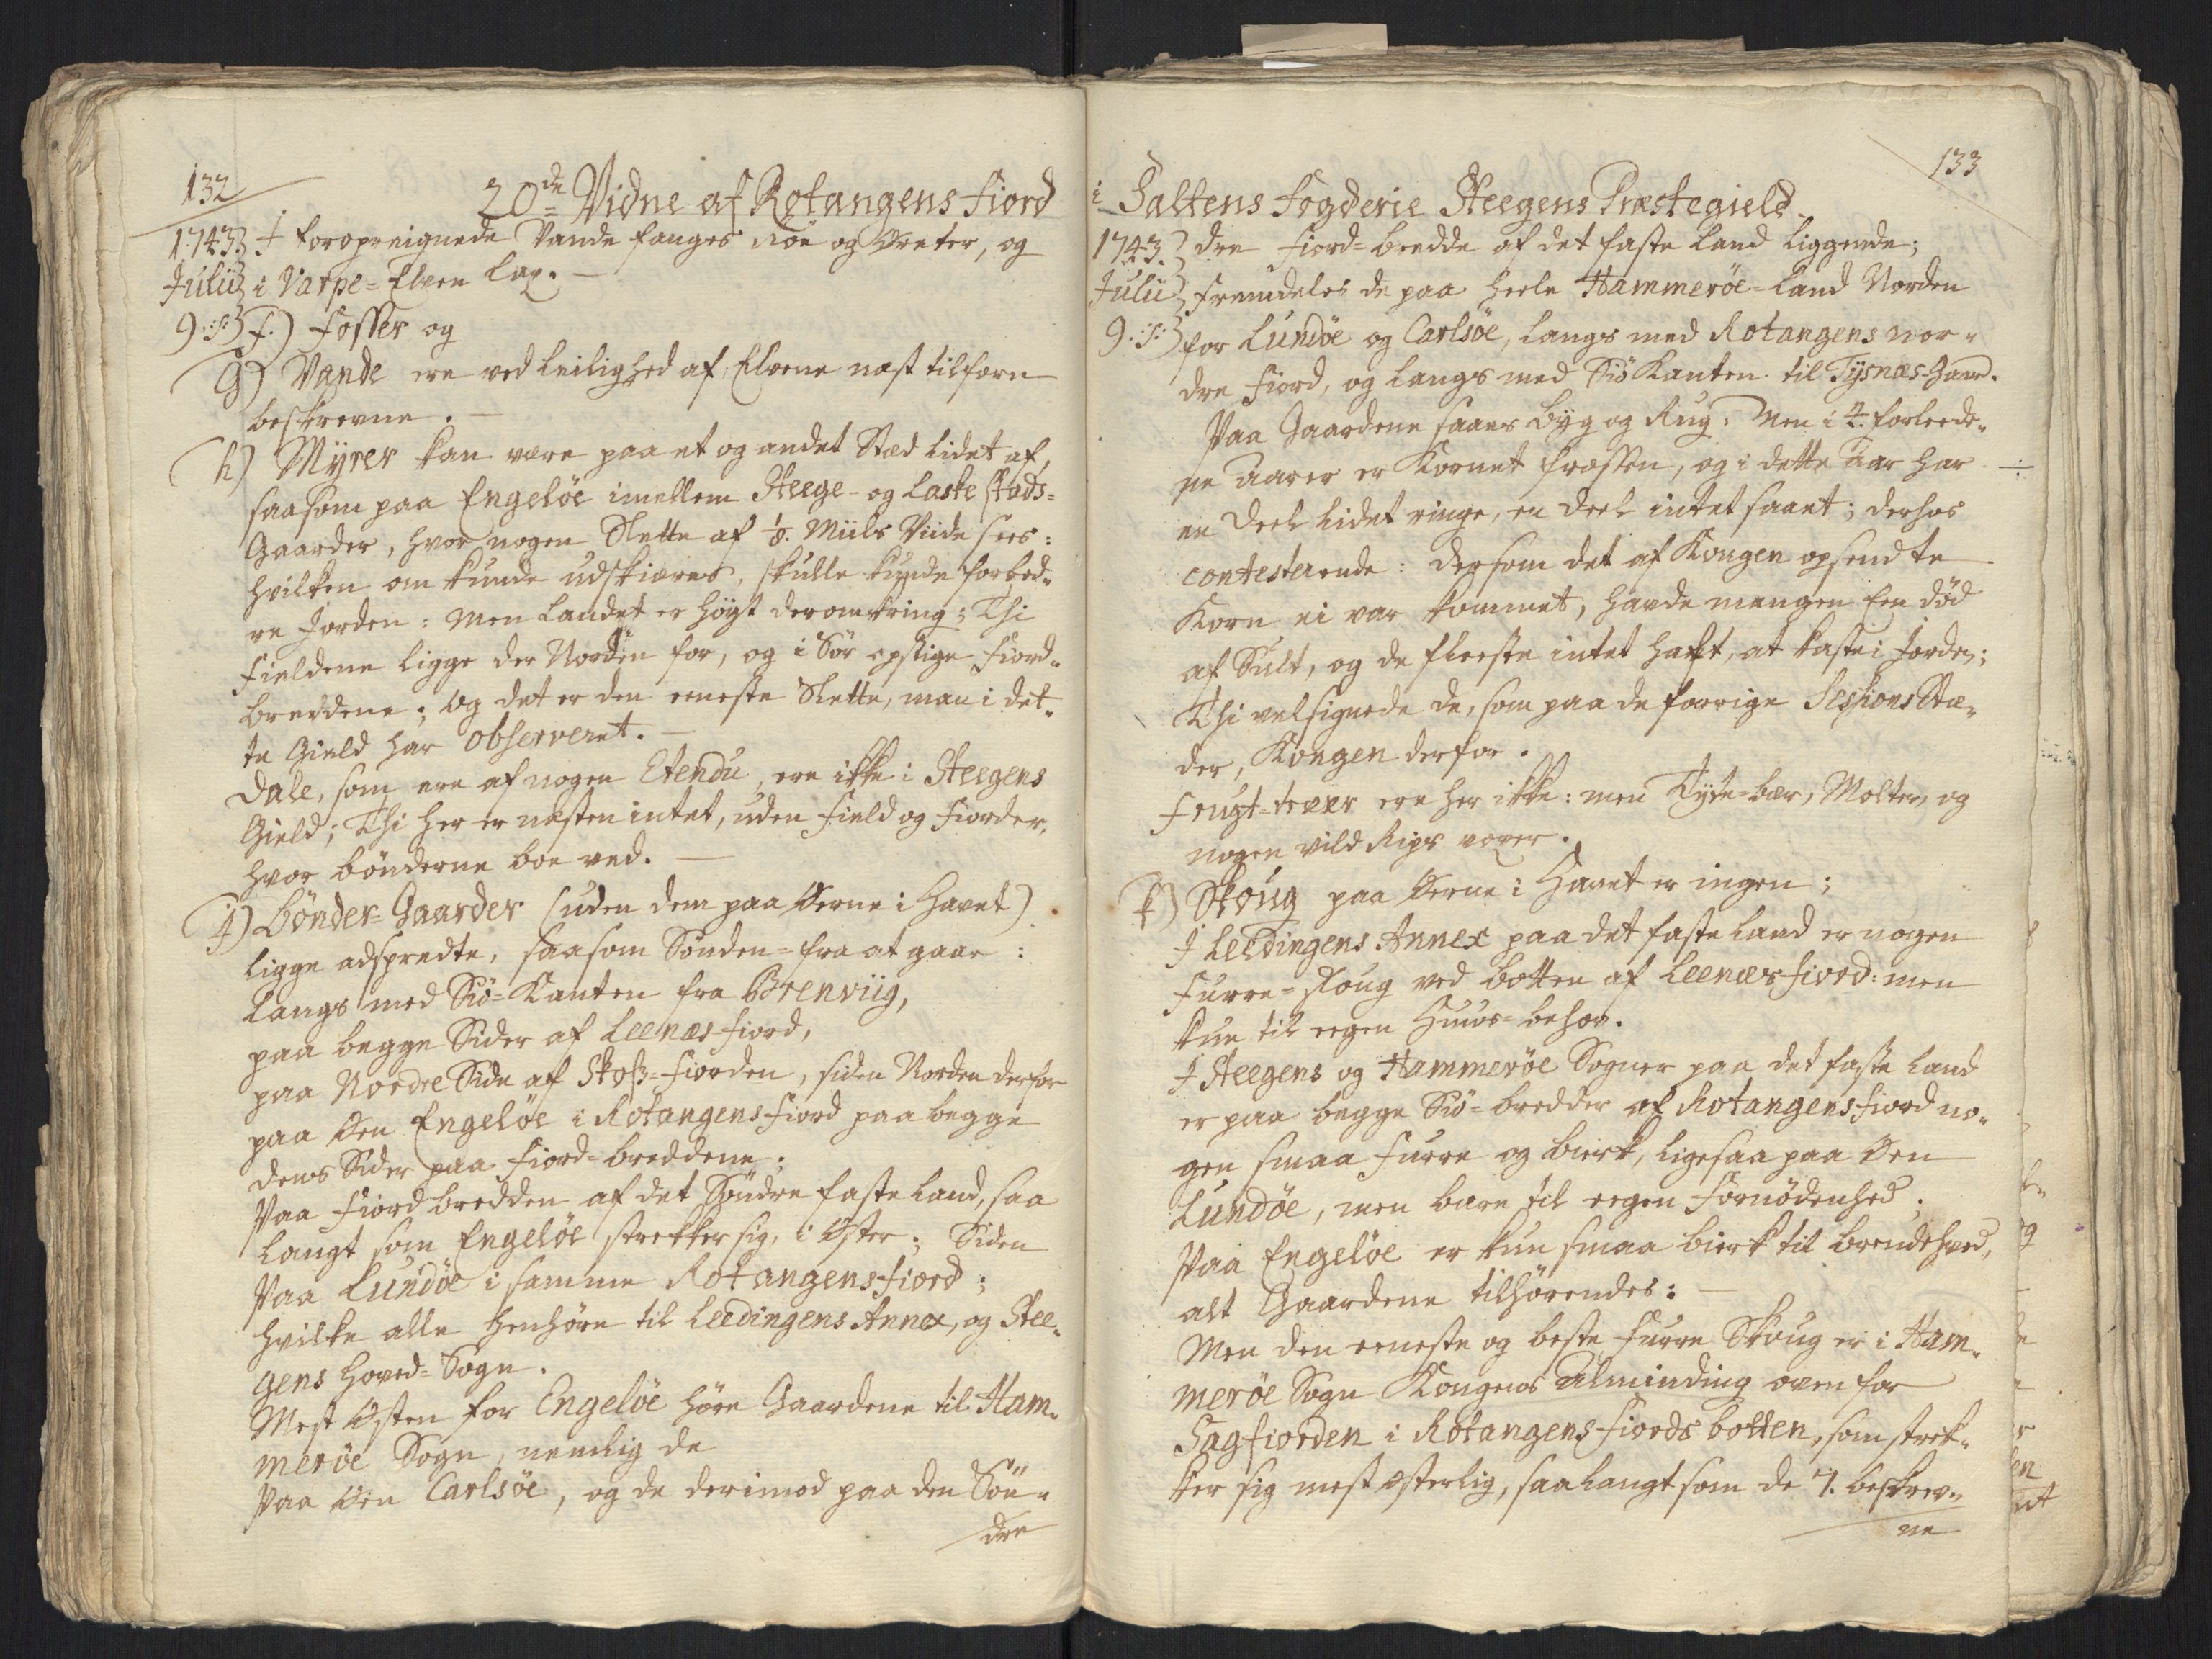 132
20de Vidne af Rotangens Fiord
1743. I foropreignede Vande fanges Röe og Ørreter, og
Julii i Varpe-Elven Lax. —
9:s: f.) Fosser og
g) Vande ere ved Leilighed af Elvene næst tilforn
beskrevne. —
h) Myrer kan være paa et og andet Stæd lidet af,
saasom paa Engelöe imellem Steege- og Laske Stads-
Gaarder, hvor nogen Slette af 1/8. Miils Viide sees:
hvilken om kunde udskiæres, skulle kunde forbed-
re Jorden: Men Landet er høyt deromkring; Thi
Fieldene ligge der Norden for, og i Sör opstige Fiord-
breddene; og det er den eeneste Slette, man i det-
te Gield har observeret. —
Dale, som ere af nogen Etendu, ere ikke i Steegens
Gield; Thi her er næsten intet, uden Field og Fiorder,
hvor bönderne boe ved. —
j) Bönder-Gaarder (uden dem paa Øerne i Havet)
ligge adspredte, saasom Sönden-fra at gaae:
Langs med Siö-Kanten fra Brenviig,
paa begge Sider af Leenæs-fiord,
paa Nordre Side af Skoß-Fiorden, siden Norden derfor
paa Øen Engelöe i Rotangens fiord paa begge
dens Sider paa Fiord-breddene;
Paa Fiordbredden af det Söndre faste Land, saa
langt som Engelöe strekker sig, i Øster; Siden
Paa Lundöe i samme Rotangens-fiord;
hvilke alle henhöre til Leedingens Annex, og Stee-
gens Hoved-Sogn.
Mest Østen for Engelöe höre Gaardene til Ham-
meröe Sogn, nemlig de
Paa Øen Carlsöe, og de derimod paa den Sön-
dre
133
i Saltens Fogderie Steegens Præstegield.
1743. dre Fiord-bredde af det faste Land liggende;
Julii Fremdeles de paa heele Hammeröe-Land Norden
9:s: for Lundöe og Carlsöe, langs med Rotangens nor-
dre Fiord, og langs med Siö Kanten til Tysnæs-Gaard.
Paa Gaardene saaes Byg og Rug. Men i 4. forleede-
ne Aarer er Kornet frossen, og i dette Aar har ÷
en Deel lidet ringe, en Deel intet saaet; derhos
contesterende: dersom det af Kongen opsendte
Korn ei var kommet, havde mangen Een död
af Sult, og de fleeste intet hafft, at kaste i Jorden;
Thi velsignede de, som paa de forrige Sessions Stæ-
der, Kongen derfor.
Frugt-træer ere her ikke: men Tyte-bær, Molter, og
nogen vild Rips voxer.
k) Skoug paa Øerne i Havet er ingen;
I Leedingens Annex paa det faste Land er nogen
Furre-Skoug ved botten af Leenæs fiord: men
kun til eegen Huus-behov.
I Steegens og Hammeröe Sogner paa det faste Land
er paa begge Siö-bredder af Rotangens fiord no-
gen smaa Furre og Birk, ligesaa paa Øen
Lundöe, men bare til eegen Fornödenhed.
Paa Engelöe er kun smaa Bierk til brendehved,
alt Gaardene tilhörendes: —
Men den eeneste og beste Furre Skoug er i Ham-
meröe Sogn Kongens Alminding oven for
Sagfiorden i Rotangens-Fiords botten, som strek-
ker sig mest Østerlig, saa langt som de 7. beskrev-
ne